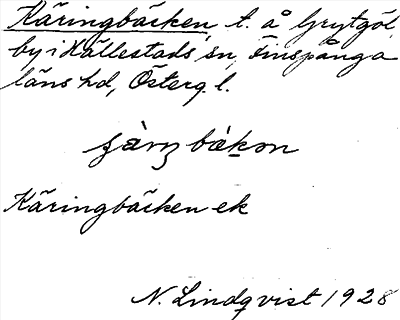 Käringbäcken t. å Grytgöl,
by i Hällestads sn, Finspånga
läns hd, Österg. l.
bàkon
Käringbäcken ek
N. Lindqvist 1928